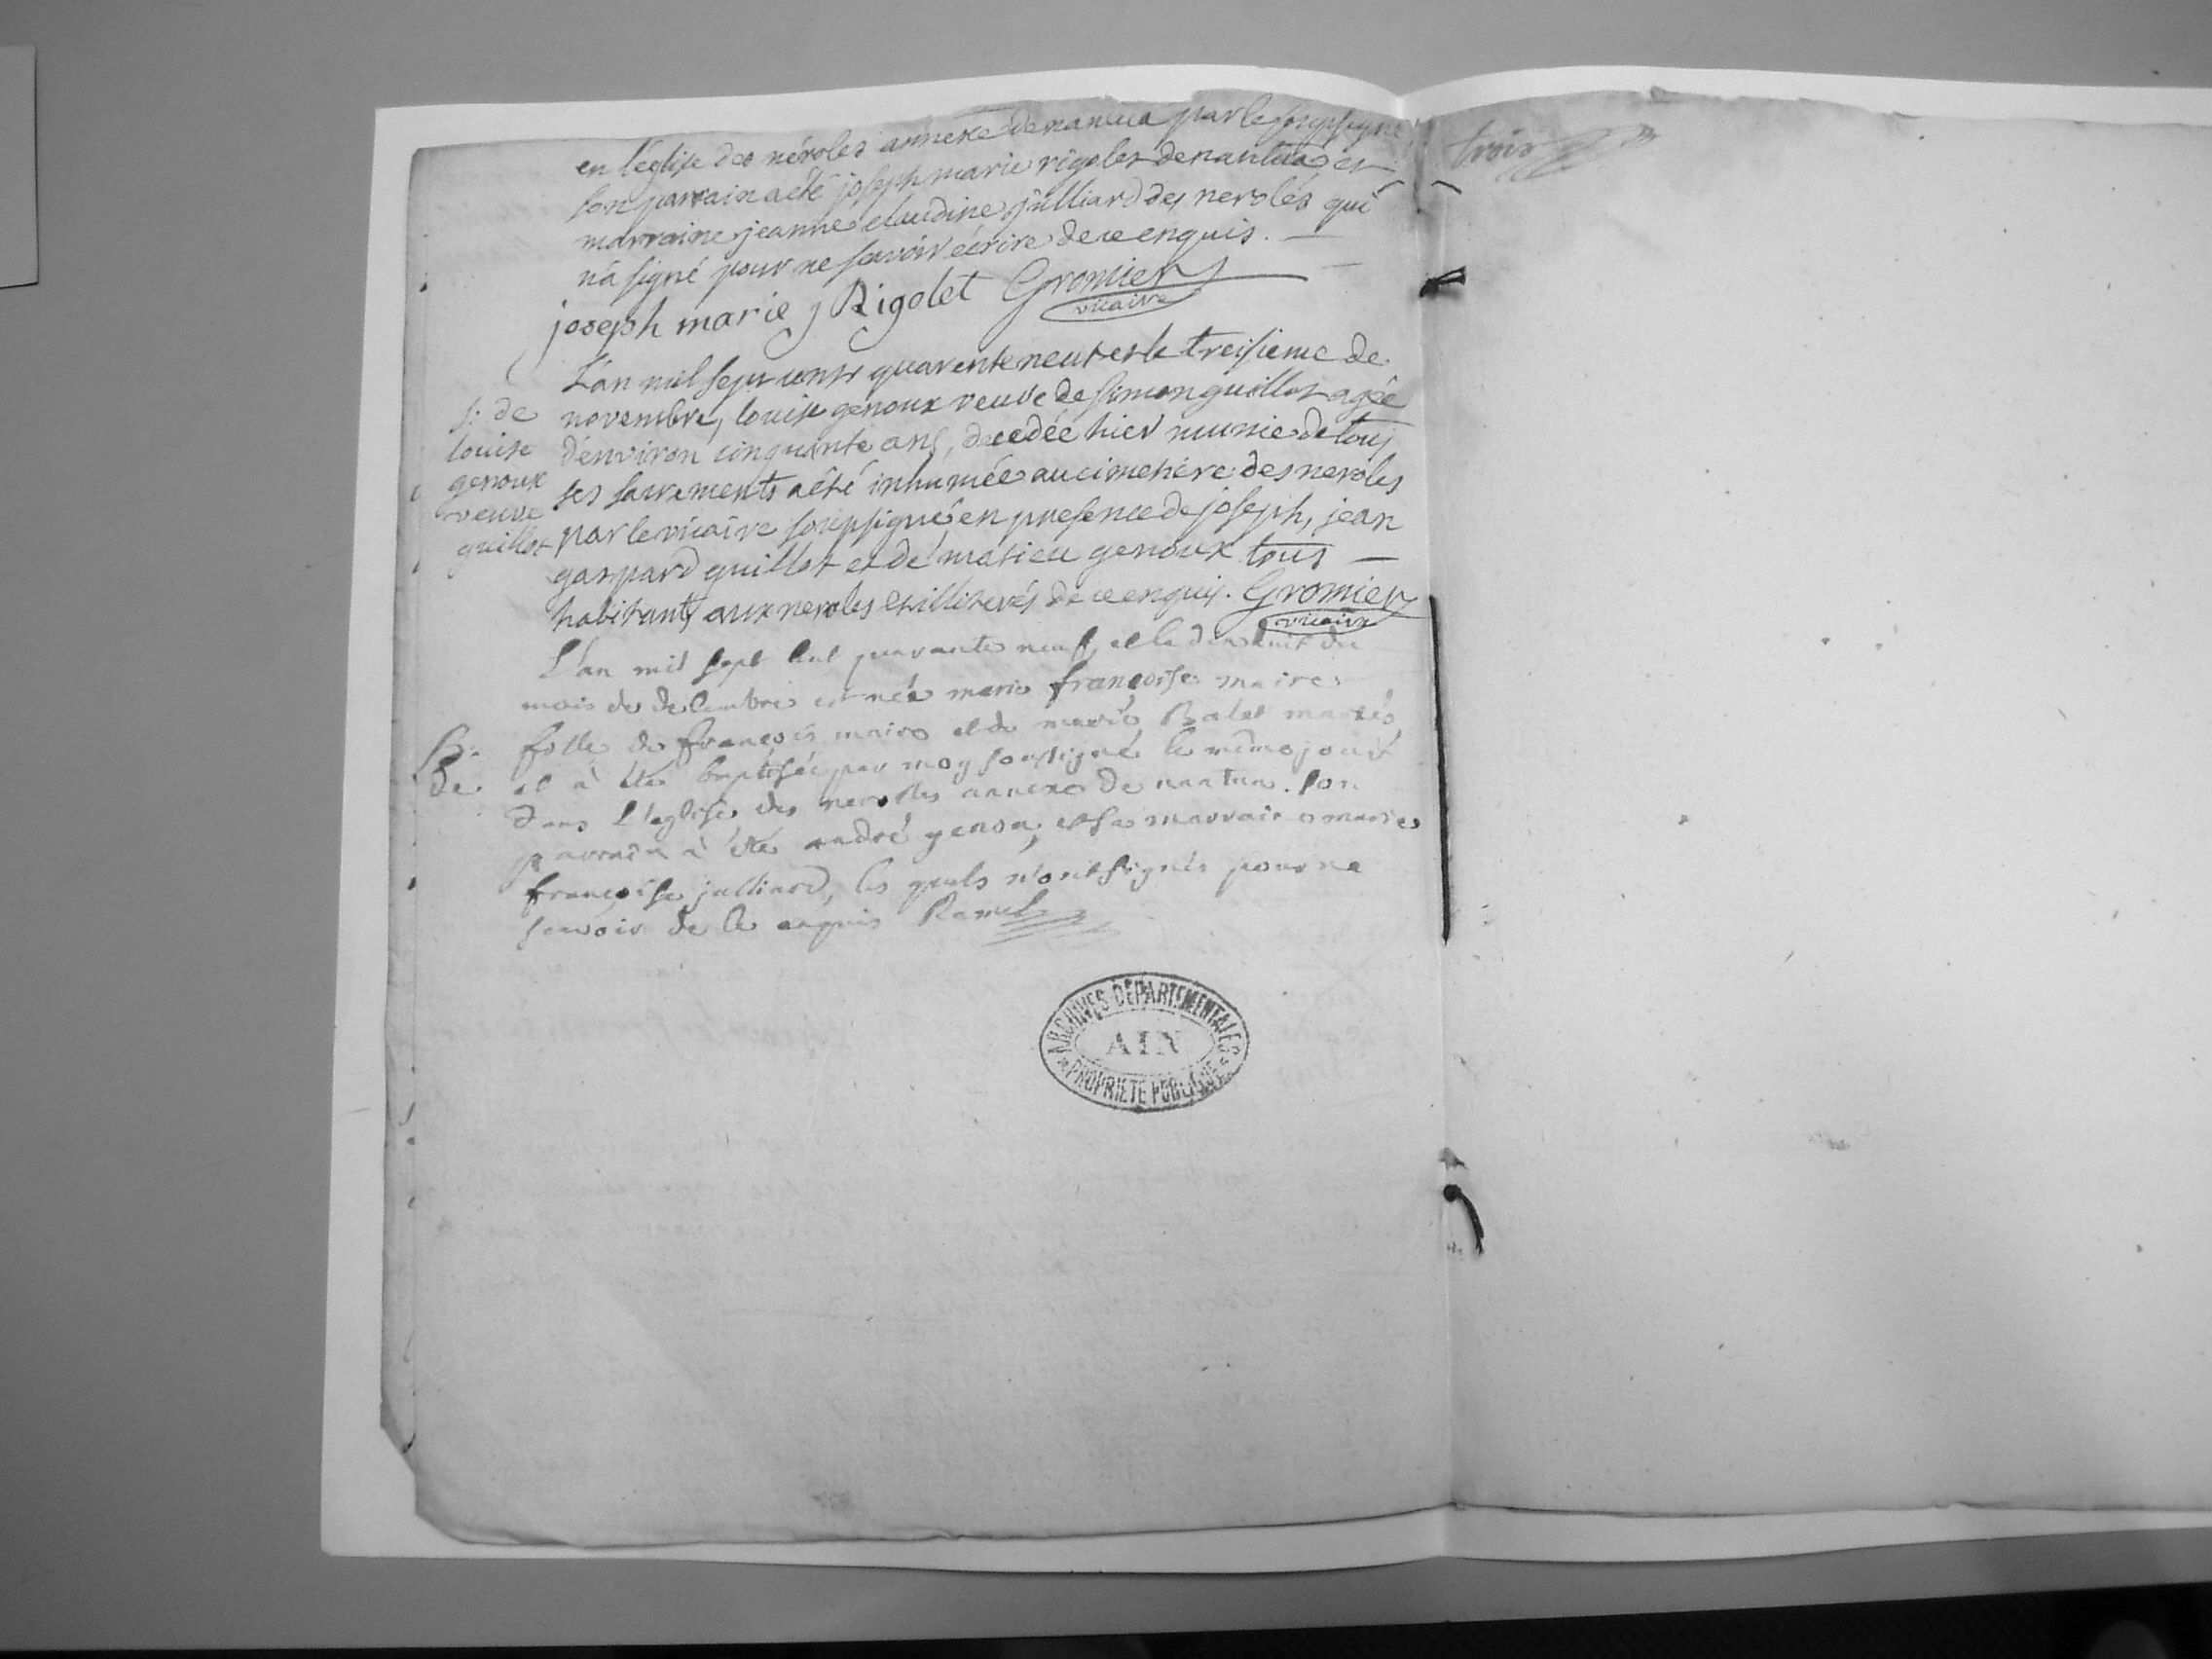 en l'église des néroles annexe de nantua par le soupsigné
son parrain a été joseph marie rigolet de nantua et
marraine jeanne claudine julliard des neroles qui
n'a signé pour ne savoir écrire de ce enquis.
joseph marie j Rigolet Gromier
vicaire
L'an mil sept cent quarente neuf et le treisieme de
novembre, louise genoux veuve de simon guillot agée
d'environ cinquante ans, decedée hier munie de tous
ses sacrements a été inhumée au cimetiere des neroles
par le vicaire soupsigné en presence de joseph, jean
gaspard guillot et de matieu genoux tous
habitants aux neroles et illiterés de ce enquis. Gromier
vicaire
S: de
louise
genoux
veuve
guillot
L'an mil sept cent quarante neuf et le dixhuit du
mois de decembre est née marie françoise maire
fille de françois maire et de marie Balet mariés
et a été baptisée par moy soussigné le meme jour
dans l'eglise des nerolles annexe de nantua. son
parrain a été andré genou, et sa marraine marie
françoise julliard, les quels n'ont signés pour ne
scavoir de ce enquis Ramel
B:
de
trois
ARCHIVES DEPARTEMENTALES
AIN
PROPRIETE PUBLIQUE